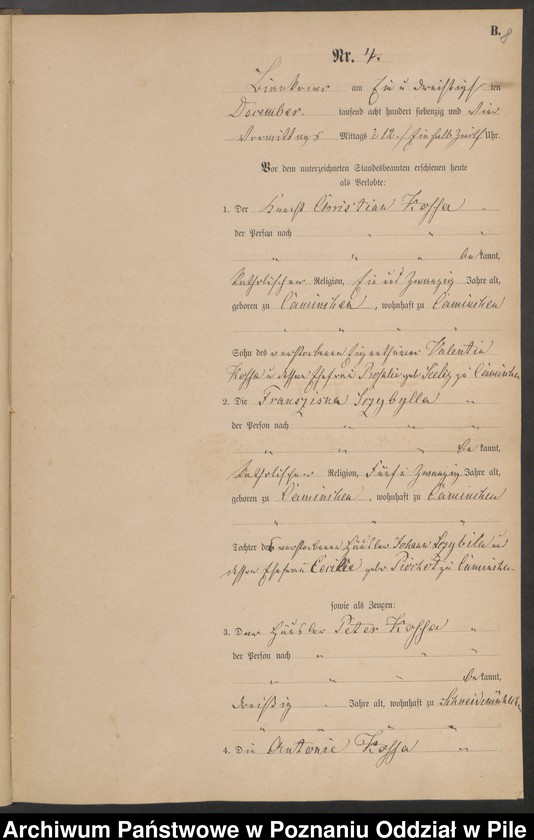 B.
8
Nr. 4.
am Ein u dreißigsten
December. tausend acht hundert siebenzig und vier
Vormittags Mittags 12 / Uhr.
Vor dem unterzeichneten Standesbeamten erschienen heute
als Verlobte:
1. Der Knecht Christian Kossa "
der Person nach " " "
" " " bekannt,
Katholischer Religion, Ein und zwanzig Jahre alt,
geboren zu Caminchen, wohnhaft zu Caminchen
" " " "
Sohn des verstorbenen Eigenthümer Valentin
Kossa u dessen Ehefrau Rosalie geb zu Caminchen
2. Die Franziska Sczybylla "
der Person nach " " "
" " " bekannt,
Katholischer Religion, Fünf u Zwanzig Jahre alt,
geboren zu Caminchen, wohnhaft zu Caminchen
" " "
Tochter des verstorbenen Häusler Johann und
dessen Ehefrau Cecilie geb zu Caminchen.
sowie als Zeugen:
3. Der Häusler Peter Kossa "
der Person nach " " "
" " " bekannt,
dreißig Jahre alt, wohnhaft zu
" " " "
4. Die Antonie Kossa "
Archiwum Państwowe w Poznaniu Oddział w Pile